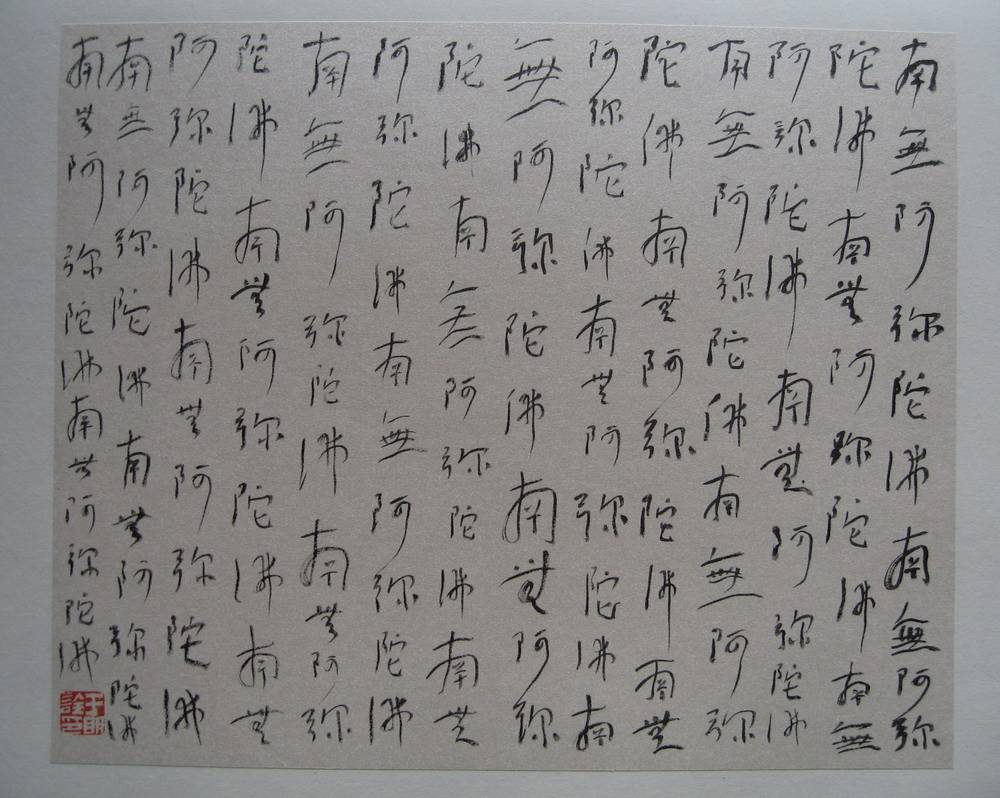 南無阿弥陀佛南無阿弥
陀佛南無阿弥陀佛南無
阿弥陀佛南無阿弥陀佛
南無阿弥陀佛南無阿弥
陀佛南無阿弥陀佛南無
阿弥陀佛南無阿弥陀佛南
無阿弥陀佛南無阿弥
陀佛南無阿弥陀佛南無
阿弥陀佛南無阿弥陀佛
南無阿弥陀佛南無阿弥
陀佛南無阿弥陀佛南無
阿弥陀佛南無阿弥陀佛
南無阿弥陀佛南無阿弥陀佛
南無阿弥陀佛南無阿弥陀佛
于明詮印